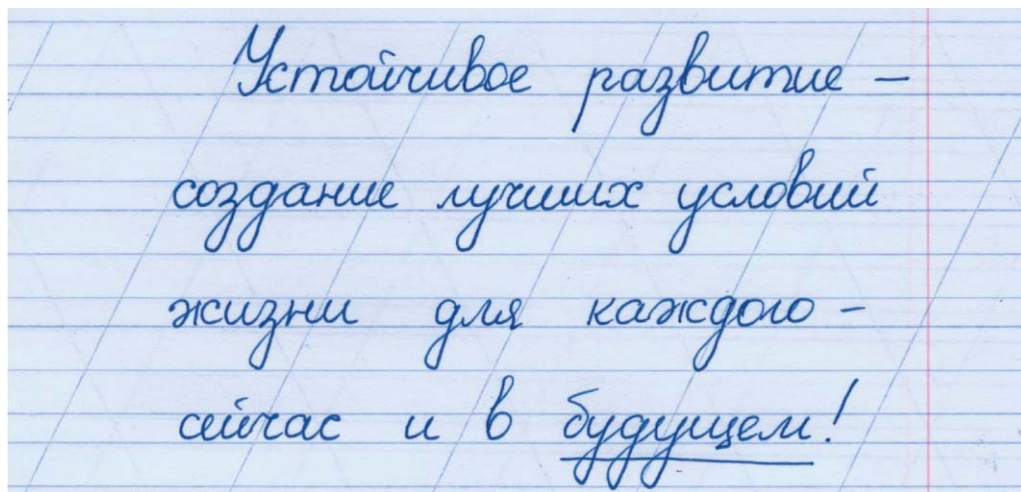 Устойчивое развитие –
создание лучших условий
жизни для каждого –
сейчас и в будущем!